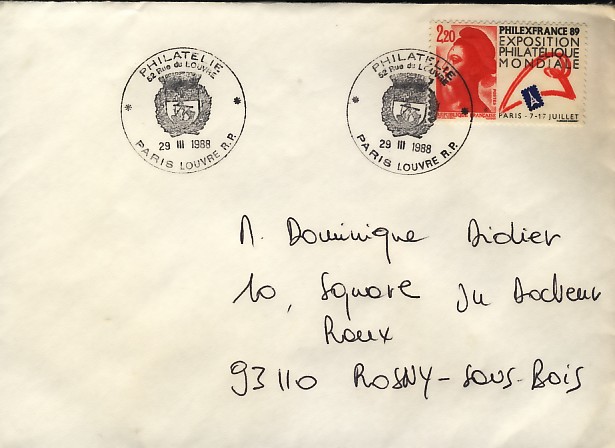 PHILATELIE
52 Rue du LOUVRE
29 III 1988
PARIS LOUVRE R.P.
PHILATELIE
52 Rue du LOUVRE
29 III 1988
PARIS LOUVRE R.P.
2,20
REPUBLIQUE FRANÇAISE
PHILEXFRANCE 89
EXPOSITION
PHILATÉLIQUE
MONDIALE
PARIS - 7-17 JUILLET
M. Dominique Didier
10, Square du Docteur
Roux
93110 ROSNY-SOUS-BOIS